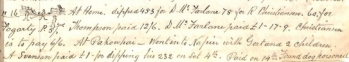 16 At Home. dipped 483 for D. McFarlane 78 for R Christiansen. 60 for
Fogarty Thompson paid 12/6. D. McFarlane paid £1-17-9. Christiansen
is to pay 9/6. At Pakowhai - Went into Napier with & 2 children.
A Svenson paid £1 for dipping his 232 on Sat 4th. Paid on 14th Found dog poisoned